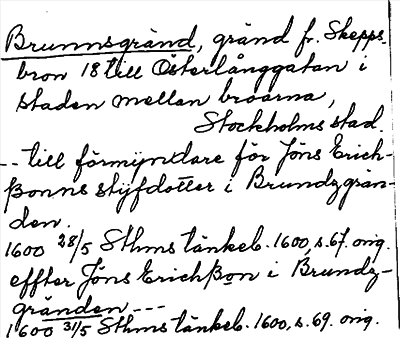 Brunnsgränd, gränd fr. Skepps-
bron 18 till Österlånggatan i
staden mellan broarna,
Stockholms stad.
--- till förmyndare för Jöns Erich-
ßonns styfdotter i Brundzgrän-
den.
1600 28/5 Sthms tänkeb. 1600, s. 67. orig.
effter Jöns Erichßon i Brundz-
gränden ---
1600 31/5 Sthms tänkeb. 1600, s. 69. orig.